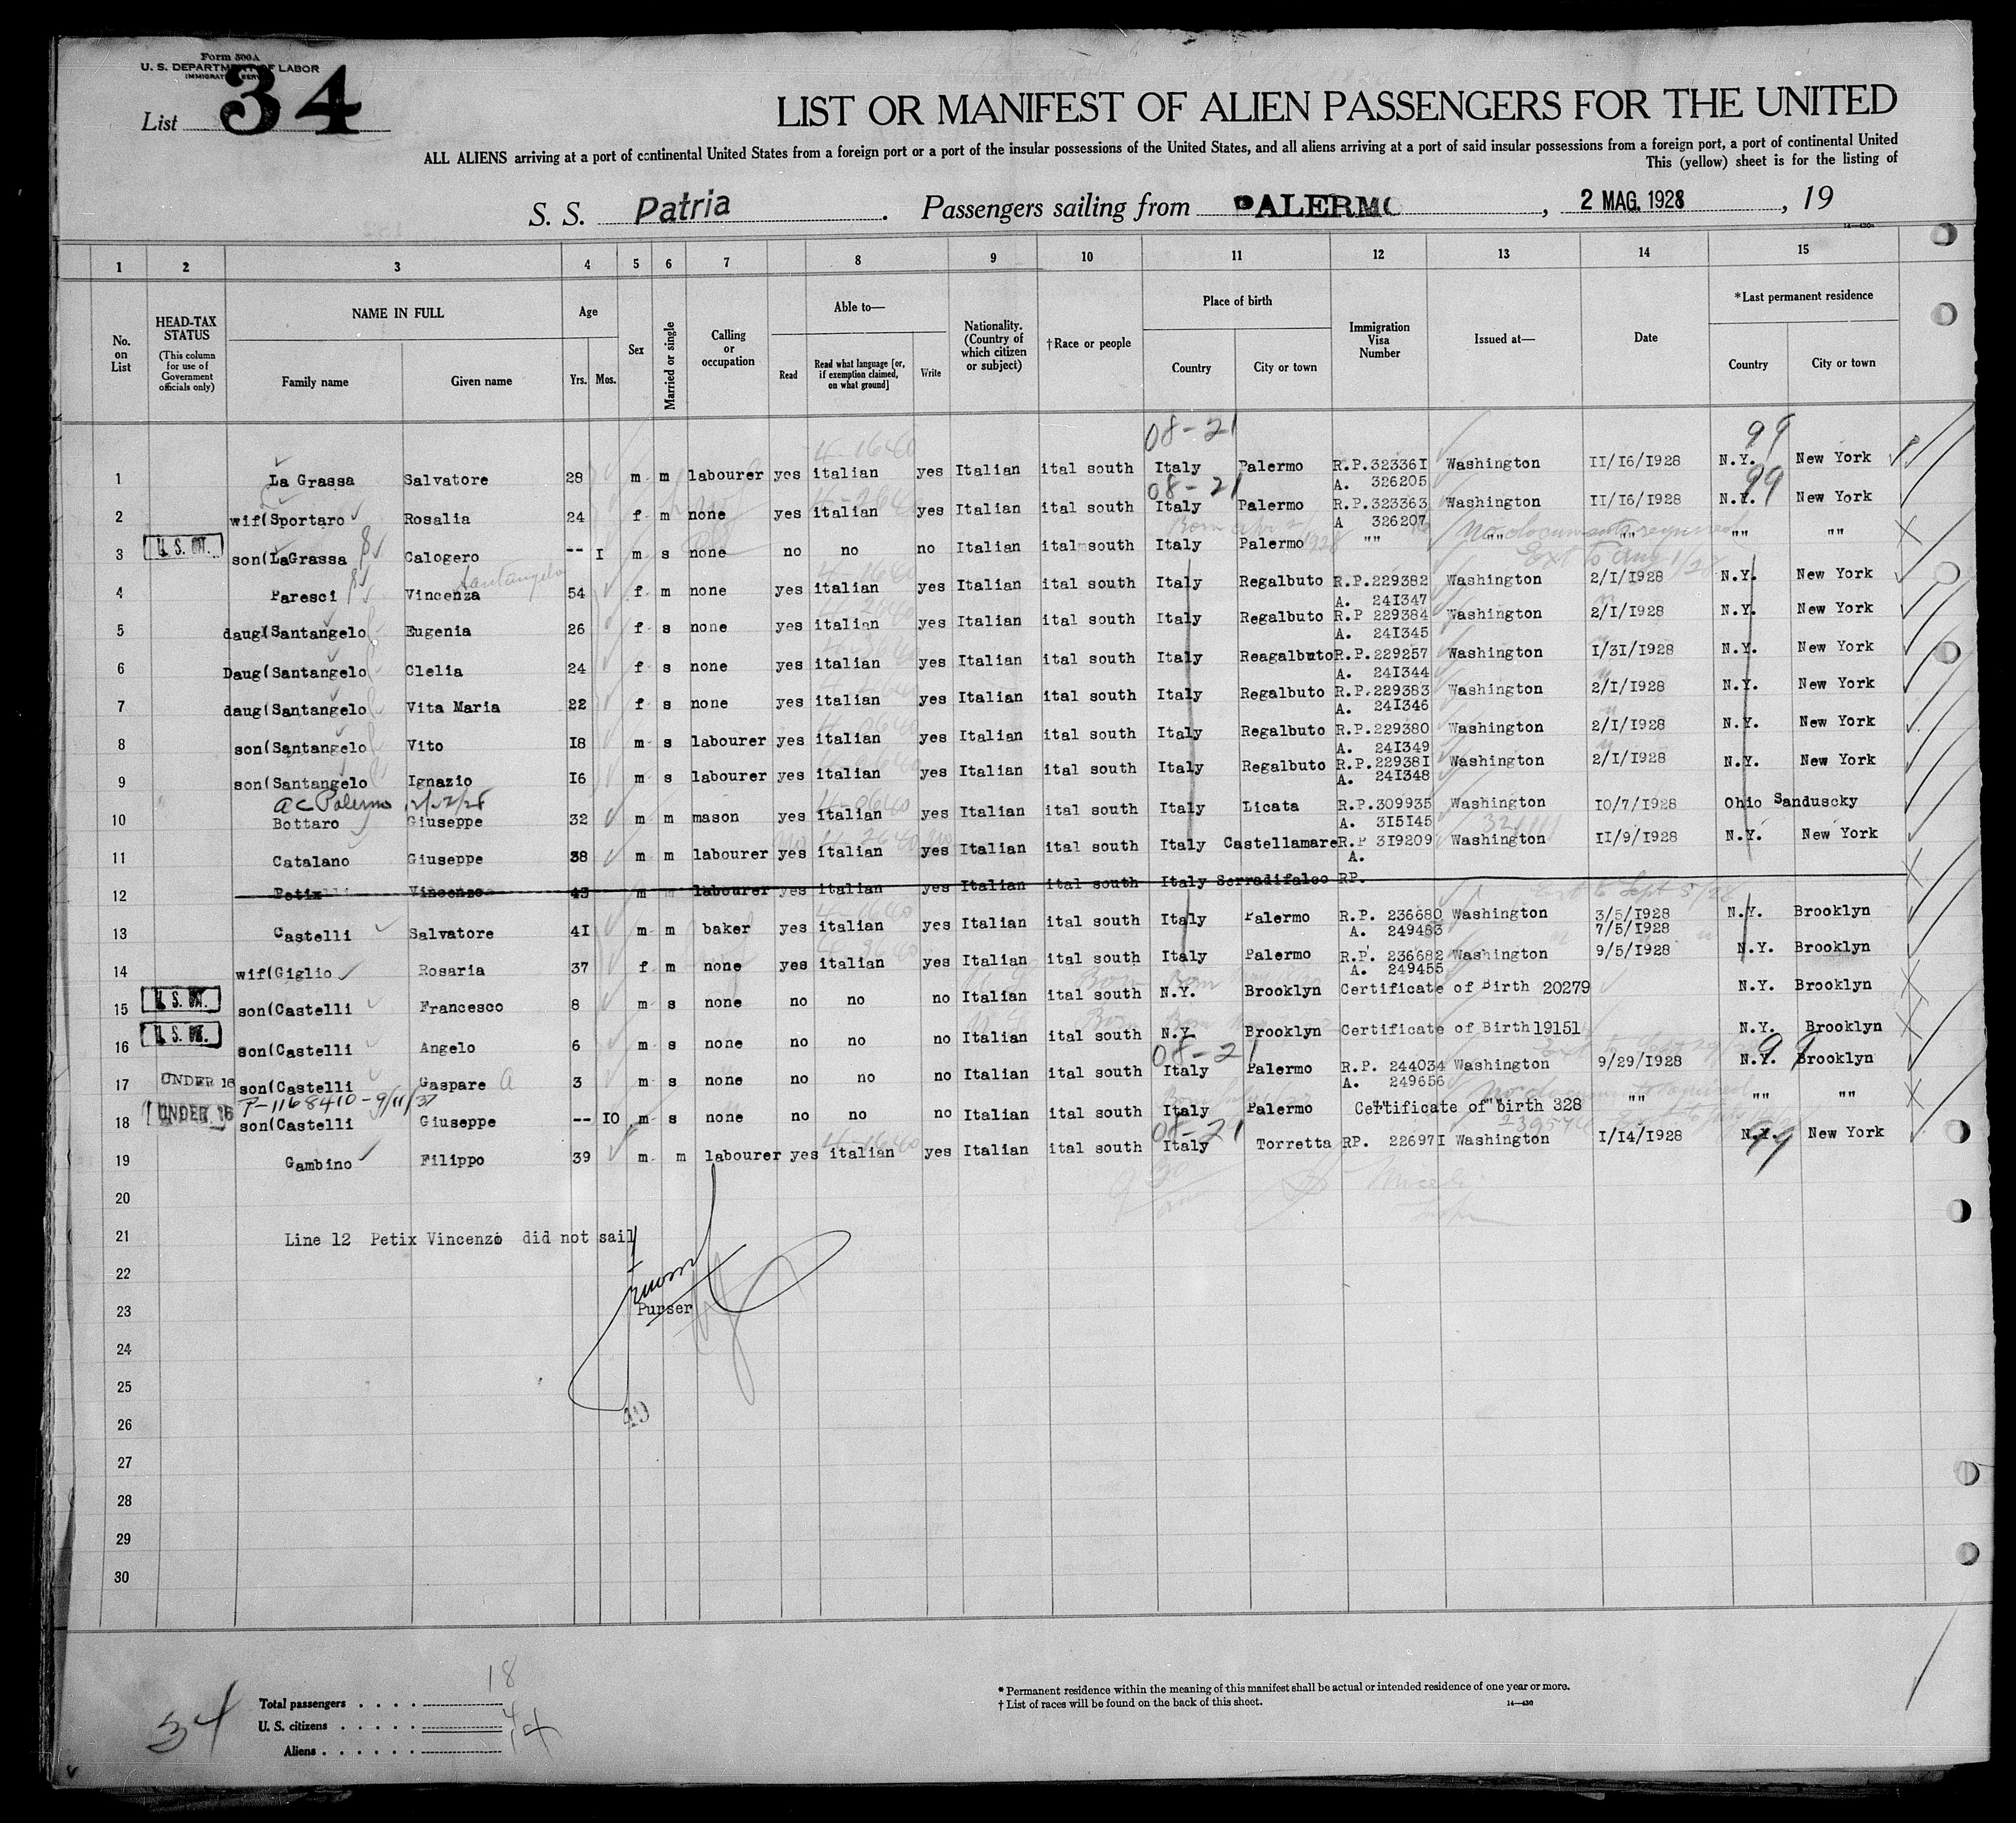 Form 500A
U. S. DEPARTMENT OF LABOR
IMMIGRATION SERVICE
List 34
LIST OR MANIFEST OF ALIEN PASSENGERS FOR THE UNITED
ALL ALIENS arriving at a port of continental United States from a foreign port or a port of the insular possessions of the United States, and all aliens arriving at a port of said insular possessions from a foreign port, a port of continental United
This (yellow) sheet is for the listing of
S. S. Patria . Passengers sailing from PALERMO , 2 MAG. 1928 , 19
14—430a
1 2 3 4 5 6 7 8 9 10 11 12 13 14 15
No. on List
HEAD-TAX STATUS (This column for use of Government officials only)
NAME IN FULL Family name Given name
Age Yrs. Mos.
Sex
Married or single
Calling or occupation
Able to— Read Read what language [or, if exemption claimed, on what ground] Write
Nationality. (Country of which citizen or subject)
†Race or people
Place of birth Country City or town
Immigration Visa Number
Issued at—
Date
*Last permanent residence Country City or town
08-21 99
1 La Grassa Salvatore 28 m m labourer yes italian yes Italian ital south Italy Palermo R.P.32336I Washington II/I6/I928 N.Y. New York
A. 326205
08-21 99
2 wif(Sportaro Rosalia 24 f m none yes italian yes Italian ital south Italy Palermo R.P.323363 Washington II/I6/I928 N.Y. New York
A 326207
No documents required
3 U. S. son(LaGrassa Calogero -- I m s none no no no Italian ital south Italy Palermo "" "" "" "" ""
Ext to Aug 1/28
Santangelo
4 Paresci Vincenza 54 f m none yes italian yes Italian ital south Italy Regalbuto R.P.229382 Washington 2/I/I928 N.Y. New York
A. 24I347
5 daug(Santangelo Eugenia 26 f s none yes italian yes Italian ital south Italy Regalbuto R.P 229384 Washington 2/I/I928 N.Y. New York
A. 24I345
6 Daug(Santangelo Clelia 24 f s none yes italian yes Italian ital south Italy Reagalbuto R.P.229257 Washington I/3I/I928 N.Y. New York
A. 24I344
7 daug(Santangelo Vita Maria 22 f s none yes italian yes Italian ital south Italy Regalbuto R.P.229383 Washington 2/I/I928 N.Y. New York
A. 24I346
8 son(Santangelo Vito I8 m s labourer yes italian yes Italian ital south Italy Regalbuto R.P.229380 Washington 2/I/I928 N.Y. New York
A. 24I349
9 son(Santangelo Ignazio I6 m s labourer yes italian yes Italian ital south Italy Regalbuto R.P.22938I Washington 2/I/I928 N.Y. New York
A. 24I348
ac Palermo
10 Bottaro Giuseppe 32 m m mason yes italian yes Italian ital south Italy Licata R.P.309935 Washington I0/7/I928 Ohio Sanduscky
A. 3I5I45
11 Catalano Giuseppe 38 m m labourer yes italian yes Italian ital south Italy Castellamare R.P 3I9209 Washington II/9/I928 N.Y. New York
A.
12 Petix Vincenzo 43 m m labourer yes italian yes Italian ital south Italy Serradifalco RP.
13 Castelli Salvatore 4I m m baker yes italian yes Italian ital south Italy Palermo R.P. 236680 Washington 3/5/I928 N.Y. Brooklyn
A. 249483 7/5/I928
14 wif(Giglio Rosaria 37 f m none yes italian yes Italian ital south Italy Palermo R.P. 236682 Washington 9/5/I928 N.Y. Brooklyn
A. 249455
15 U. S. son(Castelli Francesco 8 m s none no no no Italian ital south N.Y. Brooklyn Certificate of Birth 20279 N.Y. Brooklyn
16 U. S. son(Castelli Angelo 6 m s none no no no Italian ital south N.Y. Brooklyn Certificate of Birth I9I5I N.Y. Brooklyn
08-21 99
17 UNDER 16 son(Castelli Gaspare 3 m s none no no no Italian ital south Italy Palermo R.P. 244034 Washington 9/29/I928 N.Y. Brooklyn
A. 249656
P-1168410-9/11/37
18 UNDER 16 son(Castelli Giuseppe -- I0 m s none no no no Italian ital south Italy Palermo Certificate of birth 328 "" "" ""
08-21 99
19 Gambino Filippo 39 m m labourer yes italian yes Italian ital south Italy Torretta RP. 22697I Washington I/I4/I928 N.Y. New York
20
21 Line I2 Petix Vincenzo did not sail
22
23 Purser
24
25
26
27
28
29
30
34
Total passengers . . . . 18
U. S. citizens . . . . . 4
Aliens . . . . . . 14
* Permanent residence within the meaning of this manifest shall be actual or intended residence of one year or more.
† List of races will be found on the back of this sheet. 14—430